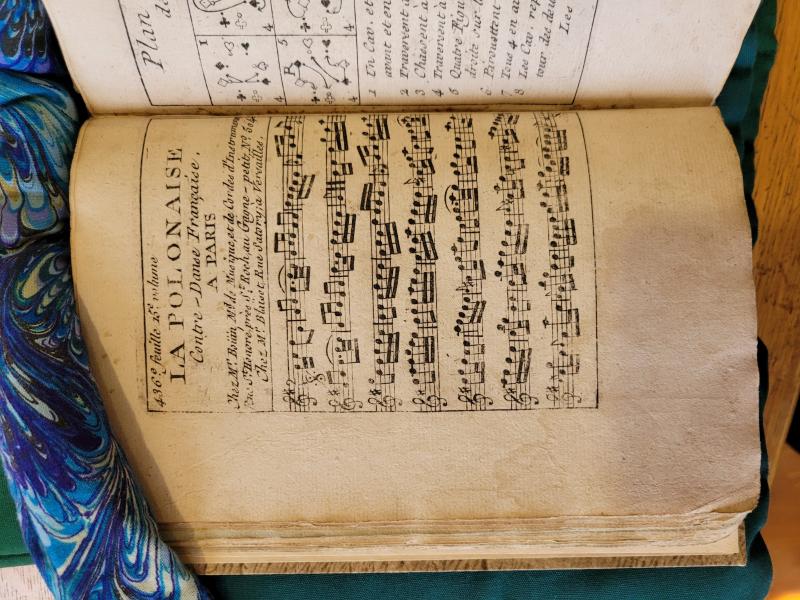 436e feuille 20e volume
LA POLONAISE
Contre-Danse Française.
A PARIS
Chez Mr Boüin, Md de Musique, et de Cordes d'Instrumens
Rue St Honoré, près St Roch, au Gagne-petit, No 504
Chez Mr Blaiset Rue Satory, à Versailles.
Plan
de
1 5
R
4 4
1 En Cav. et
avant et en
2 Traversent à
3 Chassent à
4 Traversent à
5 Quatre Figu
droite sur l
6 Pirouettent
7 Tous 4 en av
8 Les Cav. rep
tour des deux
Les